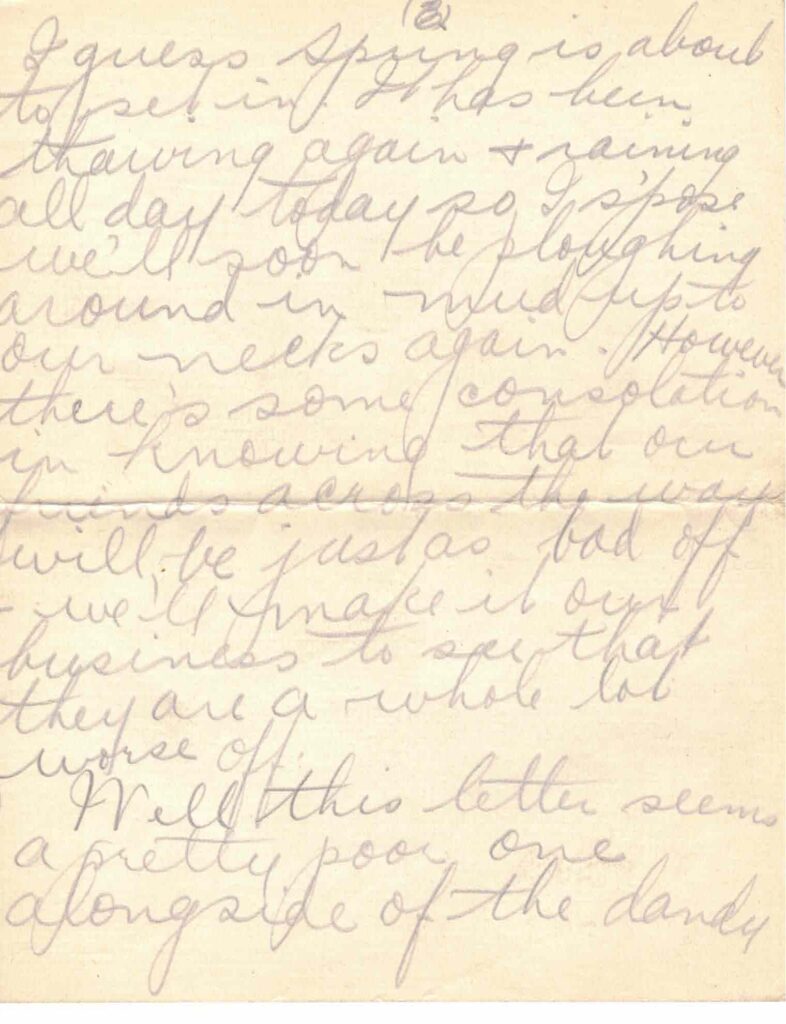 (3)
I guess Spring is about
to set in. It has been
thawing again + raining
all day today so I s'pose
we'll soon be ploughing
around in mud up to
our necks again. However
there's some consolation
in knowing that our
friends across the way
will be just as bad off
- we'll make it our
business to see that
they are a whole lot
worse off.
Well this letter seems
a pretty poor one
alongside of the dandy